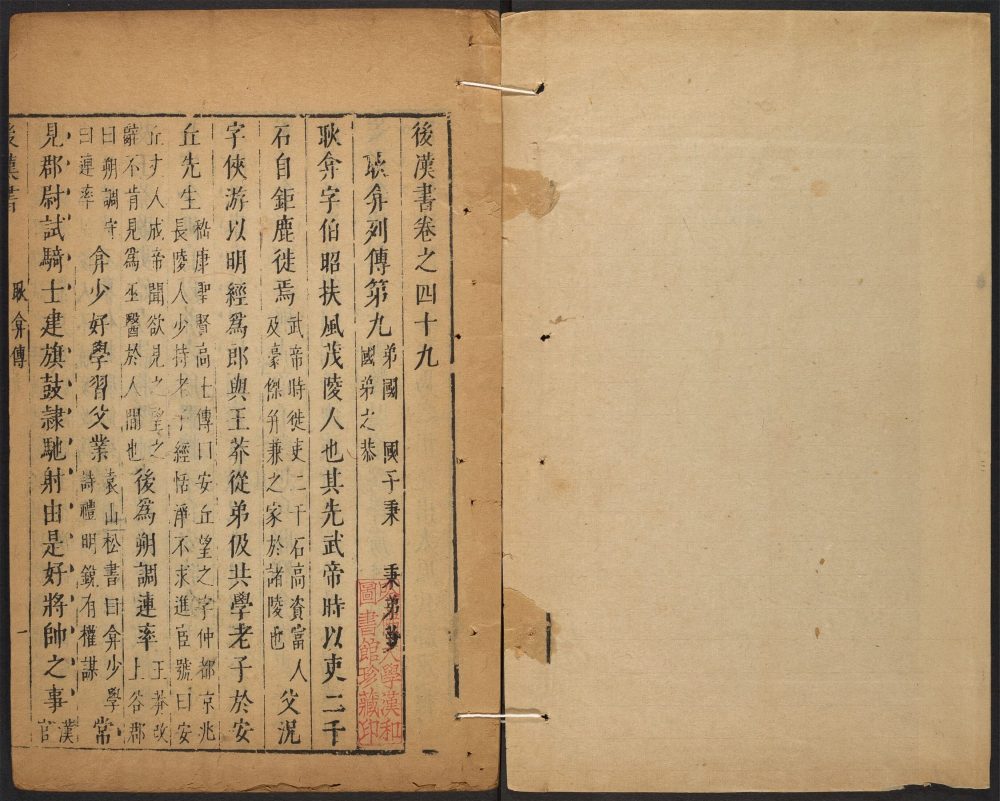 後漢書卷之四十九
耿弇列傳第九 弟國 國子秉 秉弟夔
國弟之恭
耿弇字伯昭扶風茂陵人也其先武帝時以吏二千
石自鉅鹿徙焉 武帝時徙吏二千石高資富人
及豪傑幷兼之家於諸陵也 父況
字俠游以明經爲郎與王莽從弟伋共學老子於安
丘先生 嵇康聖賢高士傳曰安丘望之字仲都京兆
長陵人少持老子經恬淨不求進宦號曰安
丘丈人成帝聞欲見之望之
辭不肯見爲巫醫於人間也 後爲朔調連率 王莽改
上谷郡
曰朔調守
曰連率 弇少好學習父業 袁山松書曰弇少學
詩禮明銳有權謀 常
見郡尉試騎士建旗鼓𨽻馳射由是好將帥之事 漢
官
後漢書 耿弇傳 一
漢和
圖書館珍藏印